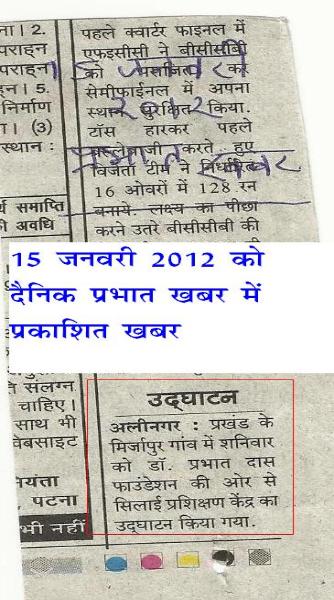 ना। 2.
पराह्न
पराह्न
हन। 5.
निर्माण
ता। (3)
स्थान :
र्य समाप्ति
की अवधि
पहले क्वार्टर फाइनल में
एफइसीसी ने बीसीसीबी
को पराजित कर
सेमीफाईनल में अपना
स्थान सुरक्षित किया.
टॉस हारकर पहले
बल्लेबाजी करते हुए
विजेता टीम ने निर्धारित
16 ओवरों में 128 रन
बनाये. लक्ष्य का पीछा
करने उतरे बीसीसीबी की
15 जनवरी
2012
प्रभात खबर
15 जनवरी 2012 को
दैनिक प्रभात खबर में
प्रकाशित खबर
ति संलग्न
चाहिए।
साथ भी
वेबसाइट
यंता
, पटना
भी नहीं
उद्घाटन
अलीनगर : प्रखंड के
मिर्जापुर गांव में शनिवार
को डॉ. प्रभात दास
फाउंडेशन की ओर से
सिलाई प्रशिक्षण केंद्र का
उद्घाटन किया गया.